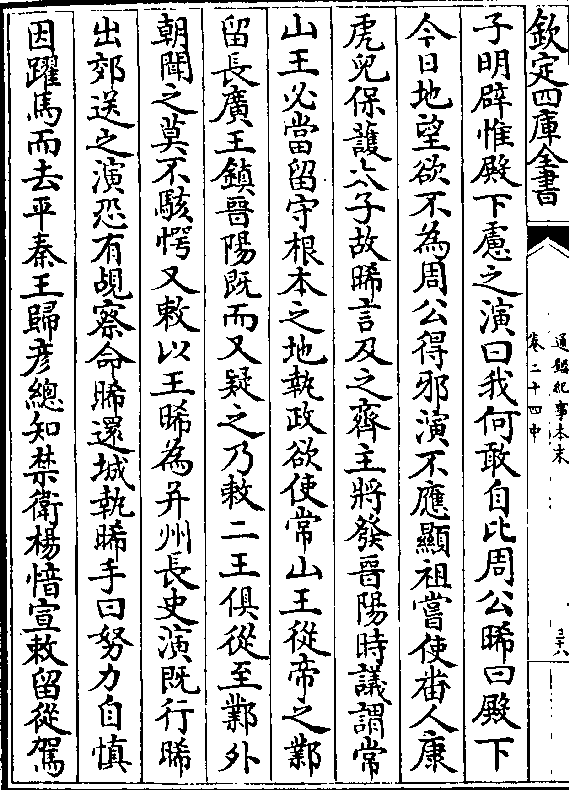 欽定四庫全書
通鑑紀事本末
卷二十四中
三十八
子明辟惟殿下慮之演曰我何敢自比周公晞曰殿下
今日地望欲不為周公得邪演不應顯祖嘗使畨人康
虎兒保護太子故晞言及之齊主將發晉陽時議謂常
山王必當留守根本之地執政欲使常山王從帝之鄴
留長廣王鎮晉陽既而又疑之乃敕二王俱從至鄴外
朝聞之莫不駭愕又敕以王晞為并州長史演既行晞
出郊送之演恐有覘察命晞還城執晞手曰努力自慎
因躍馬而去平秦王歸彦總知禁衛楊愔宣敕留從駕